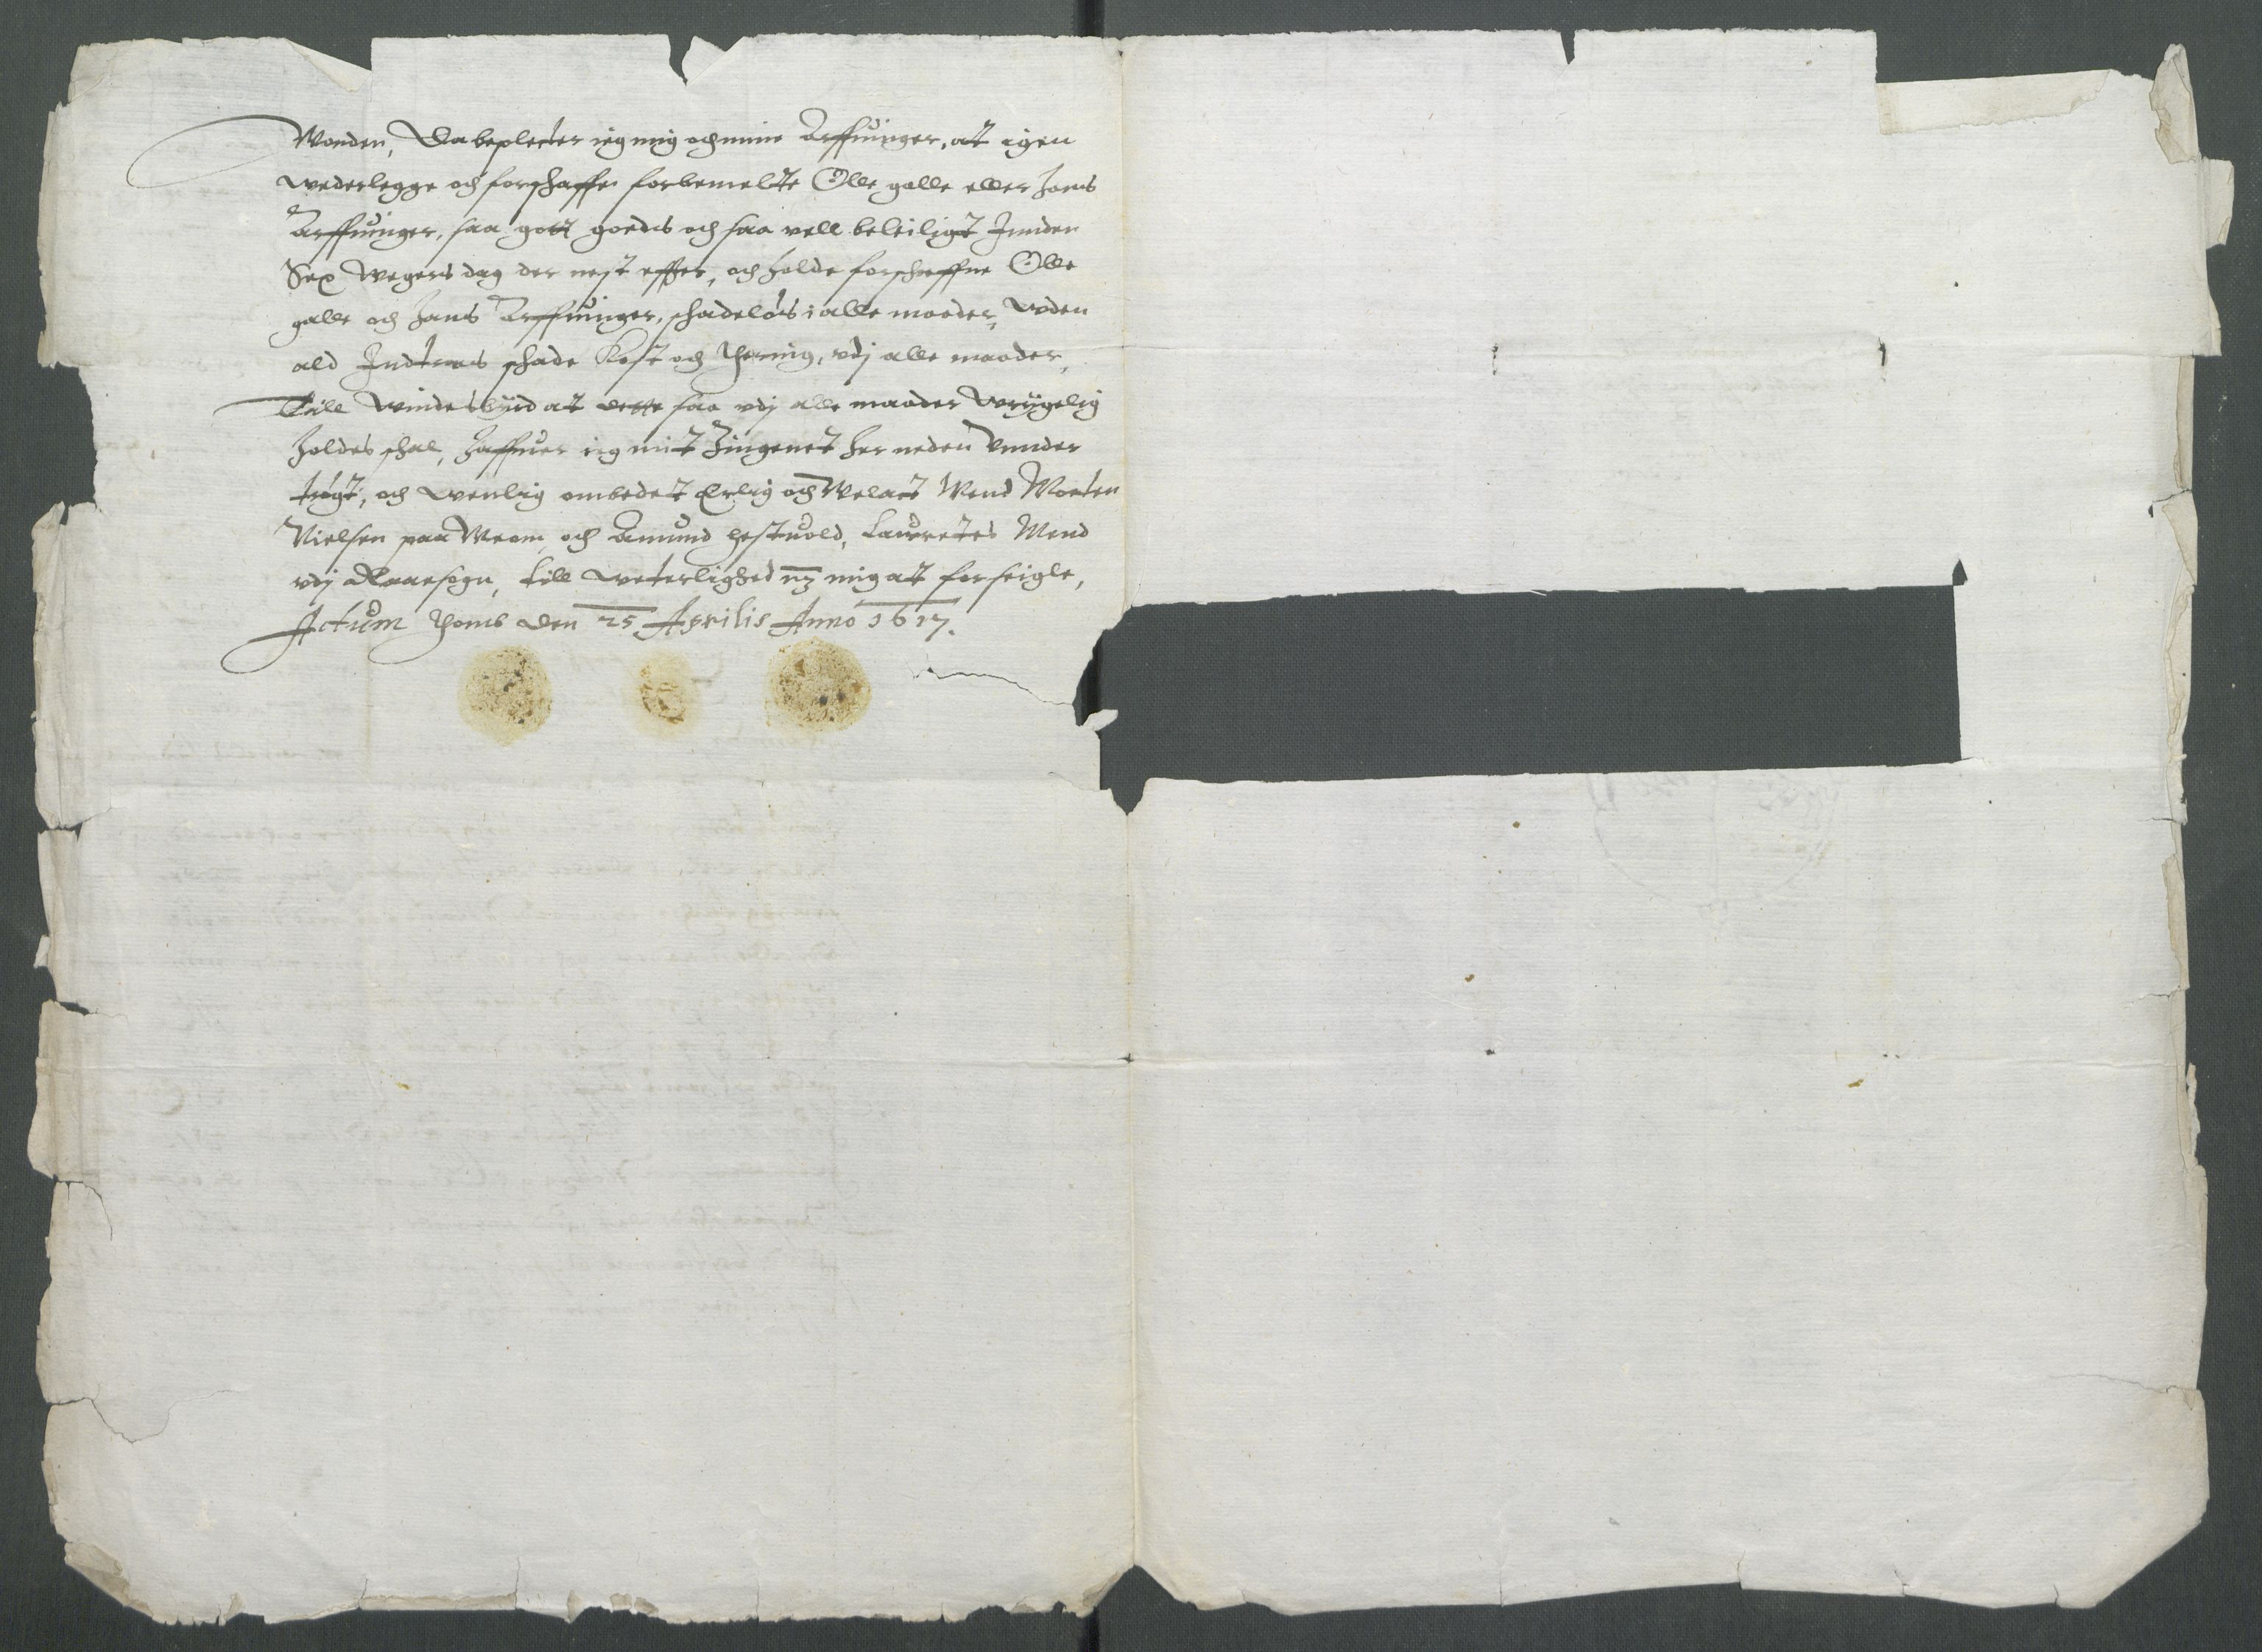 Wonden, Da beplecter ieg mig och mine Arffuinger, at igen
wederlegge och forschaffe forbemelte Olle galle eller hans
Arffuinger, saa gott goedes och saa vell beleiligt Innden
Sex wegers dag der nest effter, och holde forschreffne Olle
galle och hans Arffuinger, schadeløs i alle maader, vden
ald Indtrens schade Kost och thering, vdj alle maader,
Till windesbyrd at dette saa vdj alle maader vrygelig
holdes schal, haffuer ieg mit Zingenet her neden vnnder
trøgt, och wenlig ombedet Erlig och Welact Mend Morten
Nielsen paa Weom, och Amund hestuold, Lauretes Mend
vdj Raaesogn, till weterlighed mz mig at forseigle,
Actum Thoms den 25 Aprilis Anno 1617.